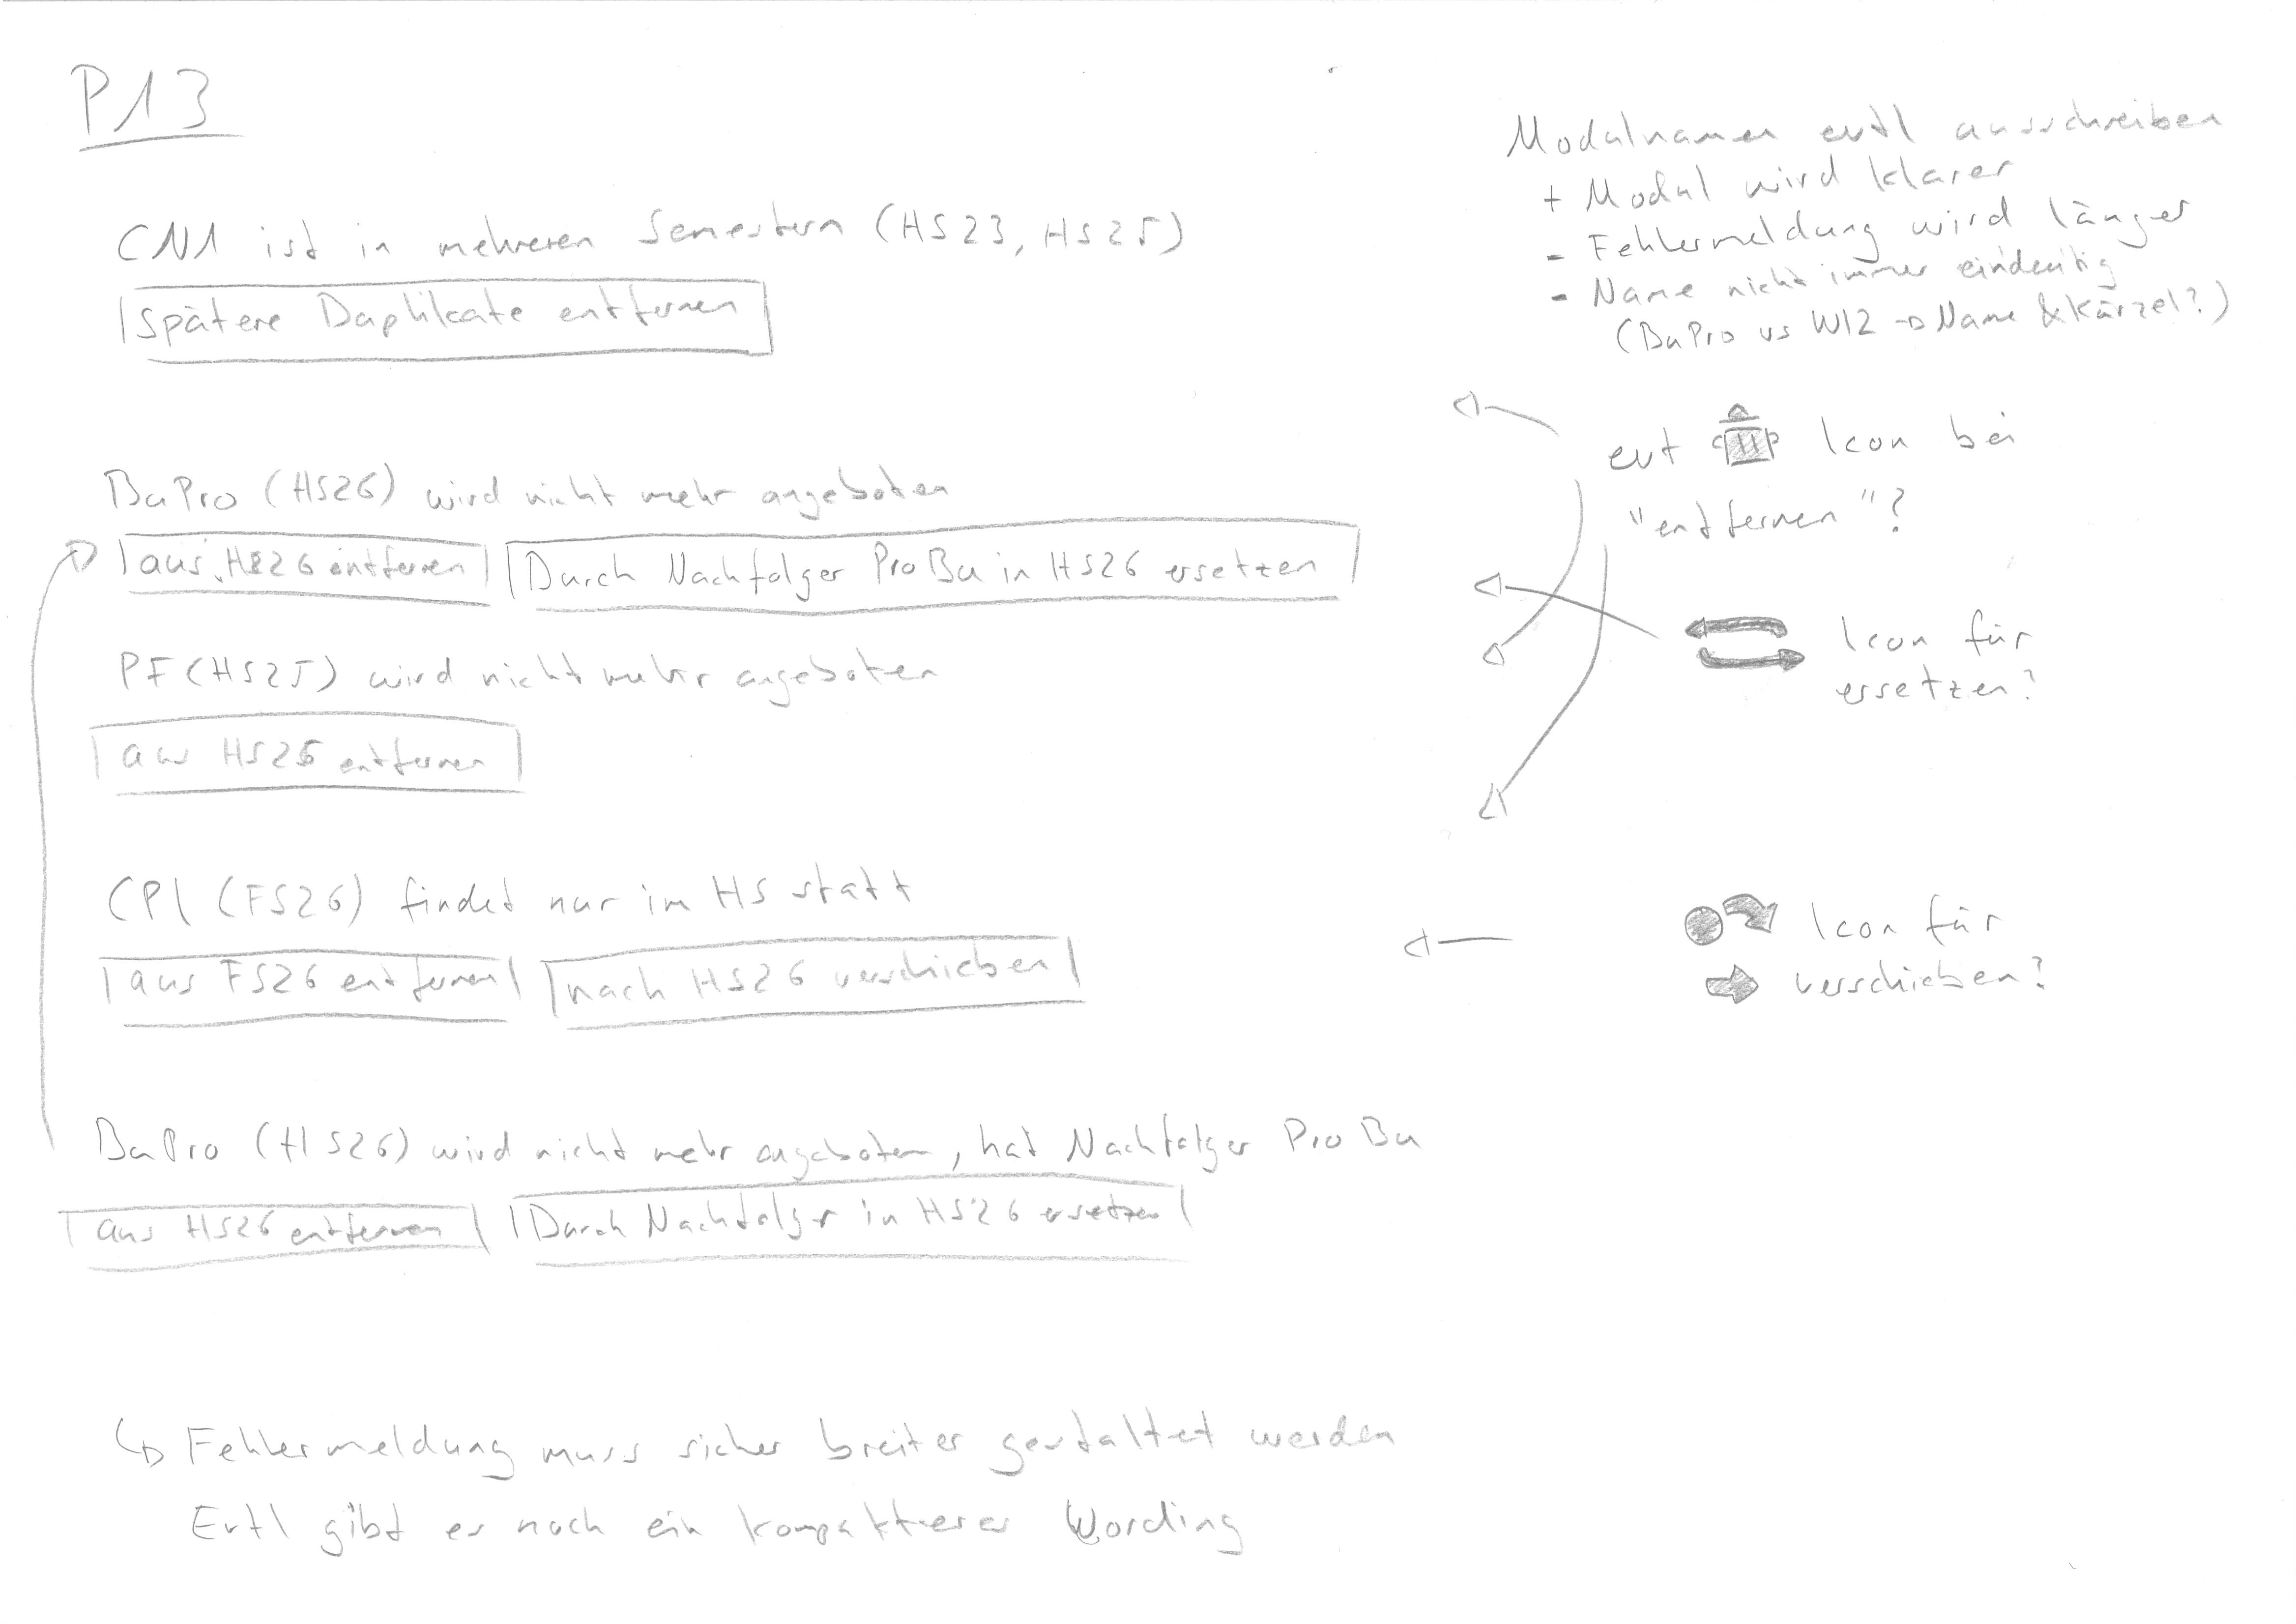 P13
CN1 ist in mehreren Semestern (HS23, HS25)
Spätere Duplikate entfernen
BaPro (HS26) wird nicht mehr angeboten
aus HS26 entfernen
Durch Nachfolger ProBa in HS26 ersetzen
PF (HS25) wird nicht mehr angeboten
aus HS25 entfernen
CPl (FS26) findet nur im HS statt
aus FS26 entfernen
nach HS26 verschieben
BaPro (HS26) wird nicht mehr angeboten, hat Nachfolger ProBa
aus HS26 entfernen
Durch Nachfolger in HS26 ersetzen
Fehlermeldung muss sicher breiter gestaltet werden
Evtl gibt es noch ein kompakteres Wording
Modalnamen evtl ausschreiben
+ Modal wird klarer
- Fehlermeldung wird länger
- Name nicht immer eindeutig
(BaPro vs WI2 → Name & Kürzel?)
evt Icon bei
"entfernen"?
Icon für
ersetzen?
Icon für
verschieben?